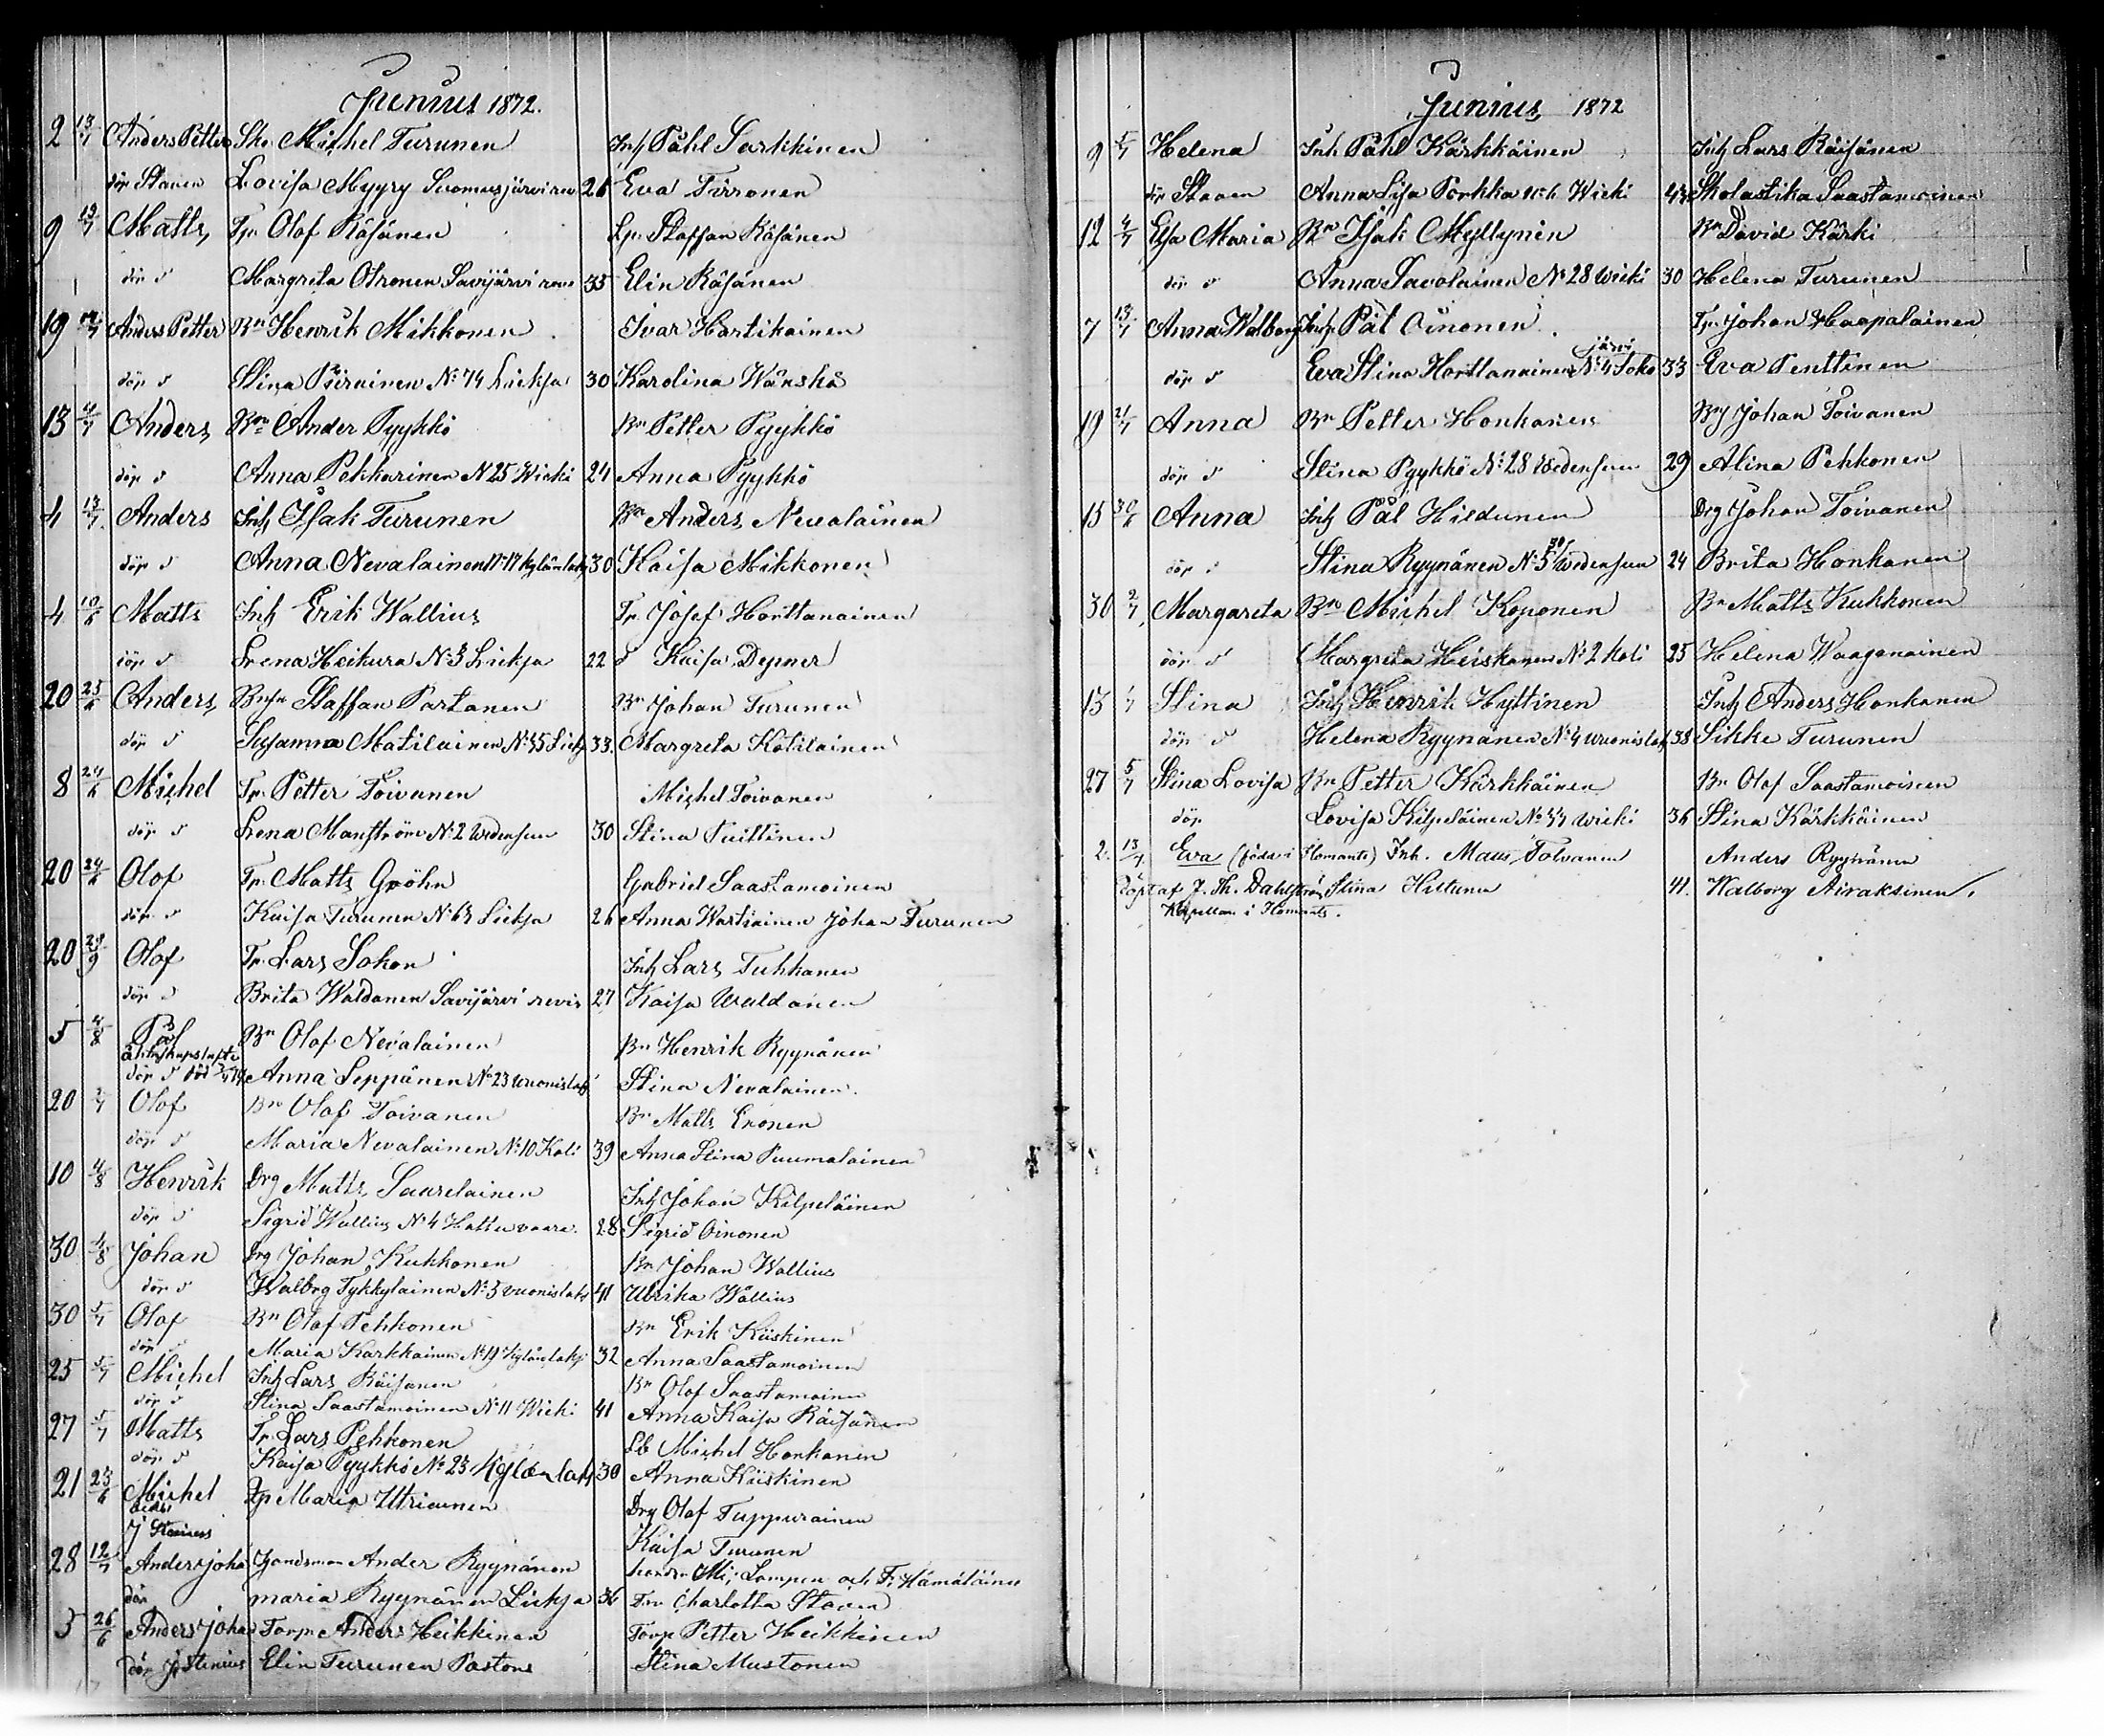 Junius 1872.
2 13/7 Anders Petter Sko. Michel Turunen Inh Påhl Sarkkinen
döp Stanen Lovisa Myyry Suomusjärvi 26 Eva Tirronen
9 13/7 Matts, Tp. Olof Räsänen Lp. Staffan Räsänen
döp S Margreta Otronen Savijärvi 35 Elin Räsänen
19 Anders Petter Bn Henrik Mikkonen Ivar Hartikainen
döp S Stina Piirainen No 74 Lieksa 30 Karolina Wänskä
13 4/7 Anders, Bn Ander Pyykkö Bn Petter Pyykkö
döp S Anna Pekkarinen N 25 Wieki 24 Anna Pyykkö
4 13/7 Anders Inh Isak Turunen Bn Anders Nevalainen
döp S Anna Nevalainen No 17 Kylänlaks 30 Kaisa Mikkonen
4 10/6 Matts Inh Erik Wallius Tp. Josef Horttanainen
döp S Lena Heikura No 3 Lieksa 22 Kaisa Depner
20 25/6 Anders, Staffan Partanen Bn Johan Turunen
döp S Susanna Matilainen No 35 Lieks 33. Margreta Kotilainen
8 24/6 Michel Tp. Petter Toivanen Michel Toivanen
döp S Lena Manström No 2 Wedensuu 30 Stina Puittinen
20 24/6 Olof Tp. Matts Gröhn Gabriel Saastamoinen
döp S Kaisa Turunen No 63 Lieksa 26 Anna Wartiainen Johan Turunen
20 29/9 Olof Tp. Lars Sokon Inh Lars Tuhkanen
döp S Brita Waldanen Savijärvi revir 27 Kaisa Waldanen
5 4/8 Pål Bn Olof Nevalainen Bn Henrik Ryynänen
döp S död Anna Seppänen No 23 Wuonislaks Stina Nevalainen.
20 2/7 Olof Bn Olof Toivanen Bn Matts Eronen
döp S Maria Nevalainen No 10 Koli 39 Anna Stina Puumalainen
10 4/8 Henrik Drg Matts Saarelainen Inh Johan Kilpeläinen
döp S Sigrid Wallius No 4 Hattuvaara. 28 Sigrid Oinonen
30 4/8 Johan Drg Johan Kukkonen Bn Johan Wallius
döp S Walbrg Tykkyläinen No 5 Wuonislaks 41 Ulrika Wallius
30 5/7 Olof Bn Olof Pehkonen Bn Erik Kiiskinen
döp S Maria Karkkainen No 19 Kylänlaks 32 Anna Saastamoinen
25 5/7 Michel Inh Lars Räisänen Bn Olof Saastamoinen
döp S Stina Saastamoinen No 11 Wieki 41 Anna Kaisa Räisänen
27 5/7 Matts Tp. Lars Pehkonen Lb Michel Honkanen
döp S Kaisa Pyykkö No 23 Kylänlaks 30 Anna Kiiskinen
21 23/6 Michel Maria Uttriainen Drg Olof Tuppurainen
Kaisa Turunen
28 12/7 Anders Joha Ander Ryynänen Lampen och F. Hämäläinen
döp Maria Ryynänen Lieksa 36 Charlotta Stanen
5 26/6 Anders Joha Torp. Anders Heikkinen Torp Petter Heikkinen
döp J Stenius Elin Turunen Stina Mustonen
Junius 1872
9 5/7 Helena Inh Påhl Kärkkäinen Inh Lars Räisänen
döp Stanen Anna Lisa Porkka No 6 Wieki 43 Skolastika Saastamoinen
12 4/7 Elsa Maria Bn Isak Myllynen Bn David Kärki
döp S Anna Savolainen No 28 Wieki 30 Helena Turunen
7 13/7 Anna Walborg Inh Pål Oinonen Tp. Johan Haapalainen
döp S Eva Stina Horttanainen No 4 Jokojärvi 33 Eva Penttinen
19 21/7 Anna Bn Petter Honkanen Johan Toivanen
döp S Stina Pyykkö No 28 Wedensuu 29 Alina Pehkonen
15 30/6 Anna Inh Pål Hildunen Drg Johan Toivanen
döp S Stina Ryynänen No 5 Wedensuu 24 Brita Honkanen
30 2/7 Margareta Bn Michel Koponen Bn Matts Kukkonen
döp S Margreta Heiskanen No 2 Koli 25 Helena Waaganainen
13 1/7 Stina Inh Henrik Hyttinen Inh Anders Honkanen
döp S Helena Ryynänen No 4 Wuonislak 38 Sikke Turunen
27 5/7 Stina Lovisa Bn Petter Kärkkäinen Bn Olof Saastamoinen
döp Lovisa Kilpeläinen No 33 Wieki 36 Stina Kärkkäinen
2. 13/7. Eva (född i Ilomants) Inh. Maus Tolvanen Anders Ryynänen
Döpt af J. Th. Dahlström, Stina Hiltunen 41. Walborg Airaksinen.
Kapellan i Ilomants.